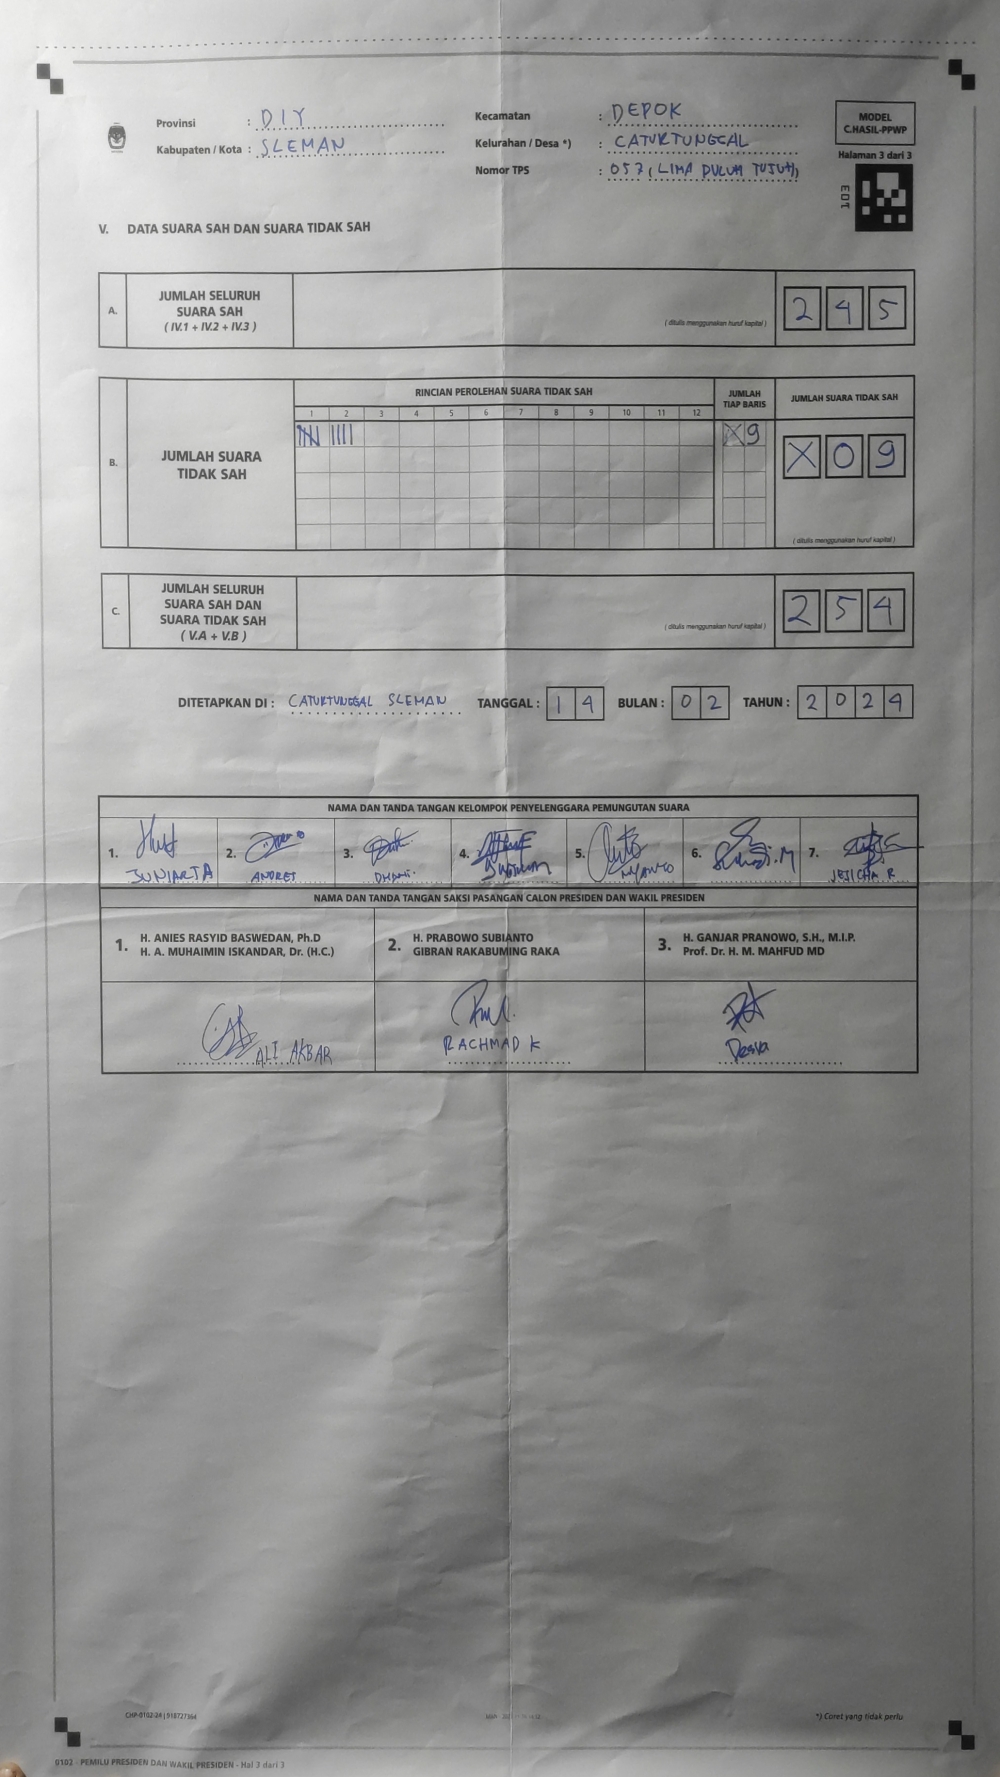 Provinsi : DIY
Kabupaten / Kota : SLEMAN
Kecamatan : DEPOK
Kelurahan / Desa *) : CATURTUNGGAL
Nomor TPS : 057 (LIMA PULUH TUJUH)
MODEL
C.HASIL-PPWP
Halaman 3 dari 3
E01
V. DATA SUARA SAH DAN SUARA TIDAK SAH
A. JUMLAH SELURUH
SUARA SAH
( IV.1 + IV.2 + IV.3 )
( ditulis menggunakan huruf kapital )
2 4 5
B. JUMLAH SUARA
TIDAK SAH
RINCIAN PEROLEHAN SUARA TIDAK SAH
1 2 3 4 5 6 7 8 9 10 11 12
JUMLAH
TIAP BARIS
X 9
JUMLAH SUARA TIDAK SAH
X 0 9
( ditulis menggunakan huruf kapital )
C. JUMLAH SELURUH
SUARA SAH DAN
SUARA TIDAK SAH
( V.A + V.B )
( ditulis menggunakan huruf kapital )
2 5 4
DITETAPKAN DI : CATURTUNGGAL SLEMAN TANGGAL : 1 4 BULAN : 0 2 TAHUN : 2 0 2 4
NAMA DAN TANDA TANGAN KELOMPOK PENYELENGGARA PEMUNGUTAN SUARA
1. 2. 3. 4. 5. 6. 7.
JUNIARTA ANDREI JESICHA R
NAMA DAN TANDA TANGAN SAKSI PASANGAN CALON PRESIDEN DAN WAKIL PRESIDEN
1. H. ANIES RASYID BASWEDAN, Ph.D
H. A. MUHAIMIN ISKANDAR, Dr. (H.C.)
2. H. PRABOWO SUBIANTO
GIBRAN RAKABUMING RAKA
3. H. GANJAR PRANOWO, S.H., M.I.P.
Prof. Dr. H. M. MAHFUD MD
ALI AKBAR
RACHMAD K
Desva
CHP-0102-26 | 918727364
*) Coret yang tidak perlu
0102 - PEMILU PRESIDEN DAN WAKIL PRESIDEN - Hal 3 dari 3